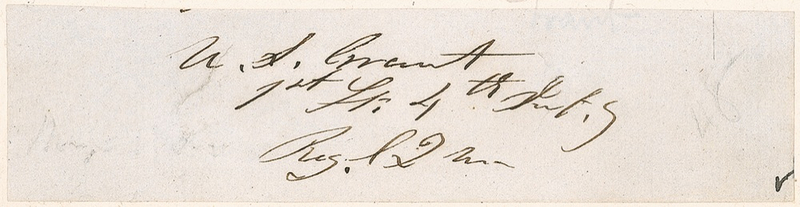 U. S. Grant
1st Lt. 4th Inf.y
Reg. l Q M